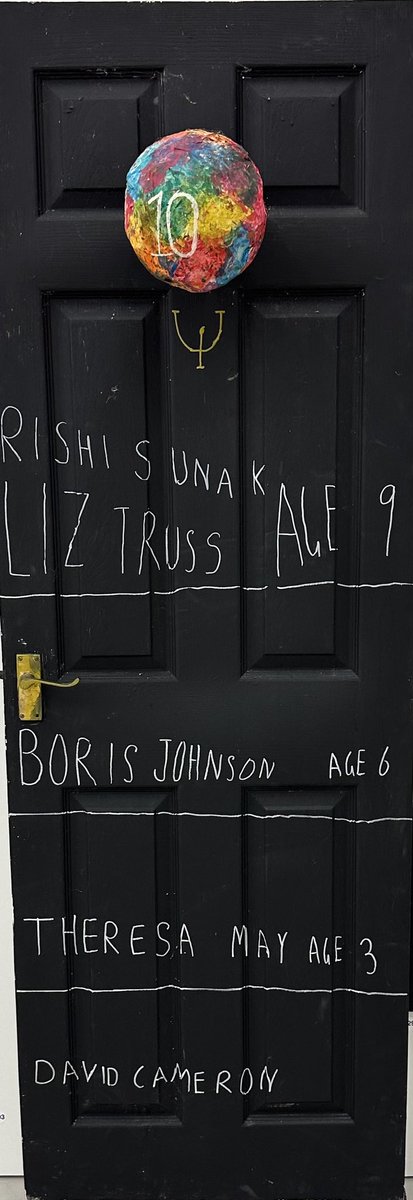 10
RISHI SUNAK
LIZ TRUSS AGE 9
BORIS JOHNSON AGE 6
THERESA MAY AGE 3
DAVID CAMERON